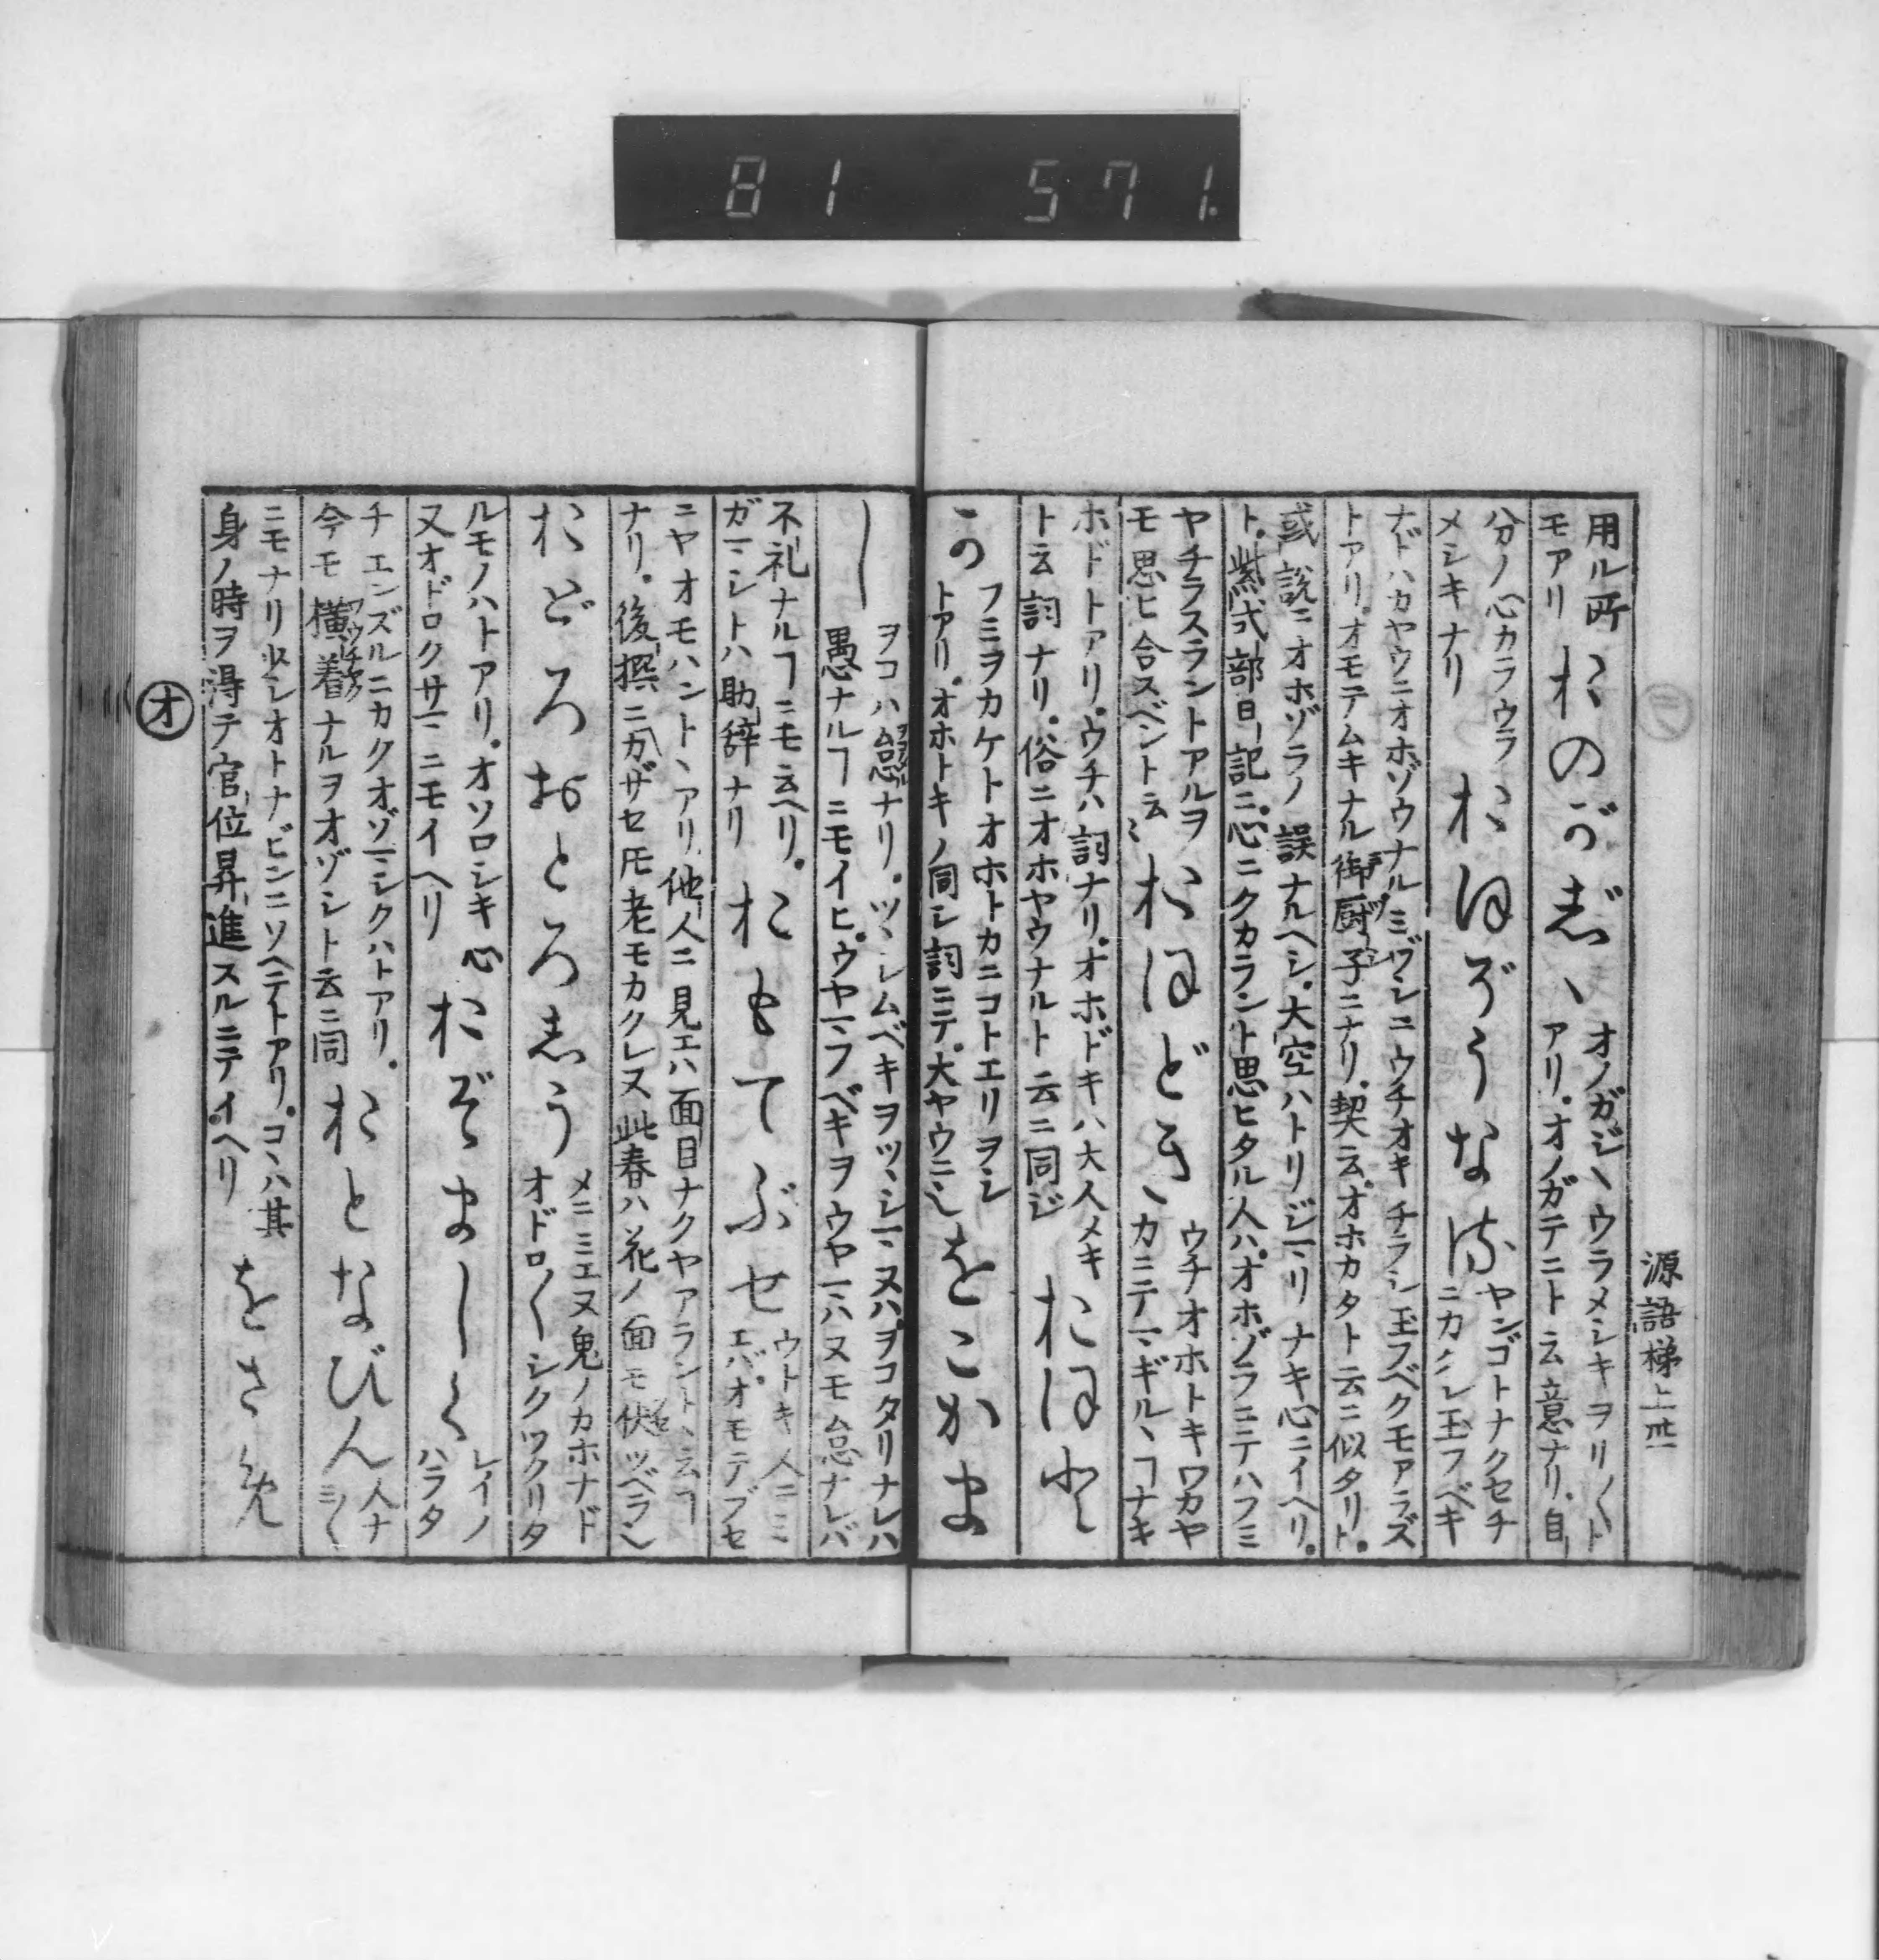 81 571.
源語梯上
用ル所
モアリ
おのがじゝ
オノガジヽウラメシキヲリ〳〵ト
アリ。オノガテニト云意ナリ。自
分ノ心カラウラ
メシキナリ
おほぞうなる
ヤンゴトナクセチ
ニカクシ玉フベキ
ナドハカヤウニオホゾウナルミヅシニウチオキチラシ玉フベクモアラズ
トアリ。オモテムキナル御厨子ニナリ。契云。オホカタト云ニ似タリト。
或説ニオホゾラノ誤ナルヘシ。大空ハトリジマリナキ心ニイヘリ。
ト。紫式部日記ニ。心ニクカラント思ヒタル人ハ。オホゾラニテハフミ
ヤチラスラントアルヲ
モ思ヒ合スベシト云
おほどき
ウチオホトキワカヤ
カニテマギルヽコナキ
ホドトアリ。ウチハ詞ナリ。オホドキハ大人メキ
ト云詞ナリ。俗ニオホヤウナルト云ニ同ジ
おほと
この
フミヲカケトオホトカニコトエリヲシ
トアリ。オホトキノ同シ詞ニテ。大ヤウニ
をこがま
し
ヲコハ怠ナリ。ツヽシムベキヲツヽシマヌハ。ヲコタリナレハ
愚ナルヿニモイヒ。ウヤマフベキヲウヤマハヌモ怠ナレバ
不礼ナルヿニモ云ヘリ。
ガマシトハ助辞ナリ
おもてぶせ
ウトキ人ニミ
エバ。オモテブセ
ニヤオモハントヽアリ。他人ニ見エハ面目ナクヤアラントヽ云ヿ
ナリ。後撰ニカザセ𪜈老モカクレヌ此春ハ花ノ面モ伏ツベラ
おどろおどろしう
メニミエヌ鬼ノカホナド
オドロ〳〵シクツクリタ
ルモノハトアリ。オソロシキ心
又オドロクサマニモイヘリ
おぞまし〳〵
レイノ
ハラタ
チエンズルニカクオゾマシクハトアリ。
今モ横着ナルヲオゾシト云ニ同
おとなびん
人ナミ〳〵
ニモナリ少シオトナビンニソヘテトアリ。コヽハ其
身ノ時ヲ得テ官位昇進スルニテイヘリ
をさ
オ